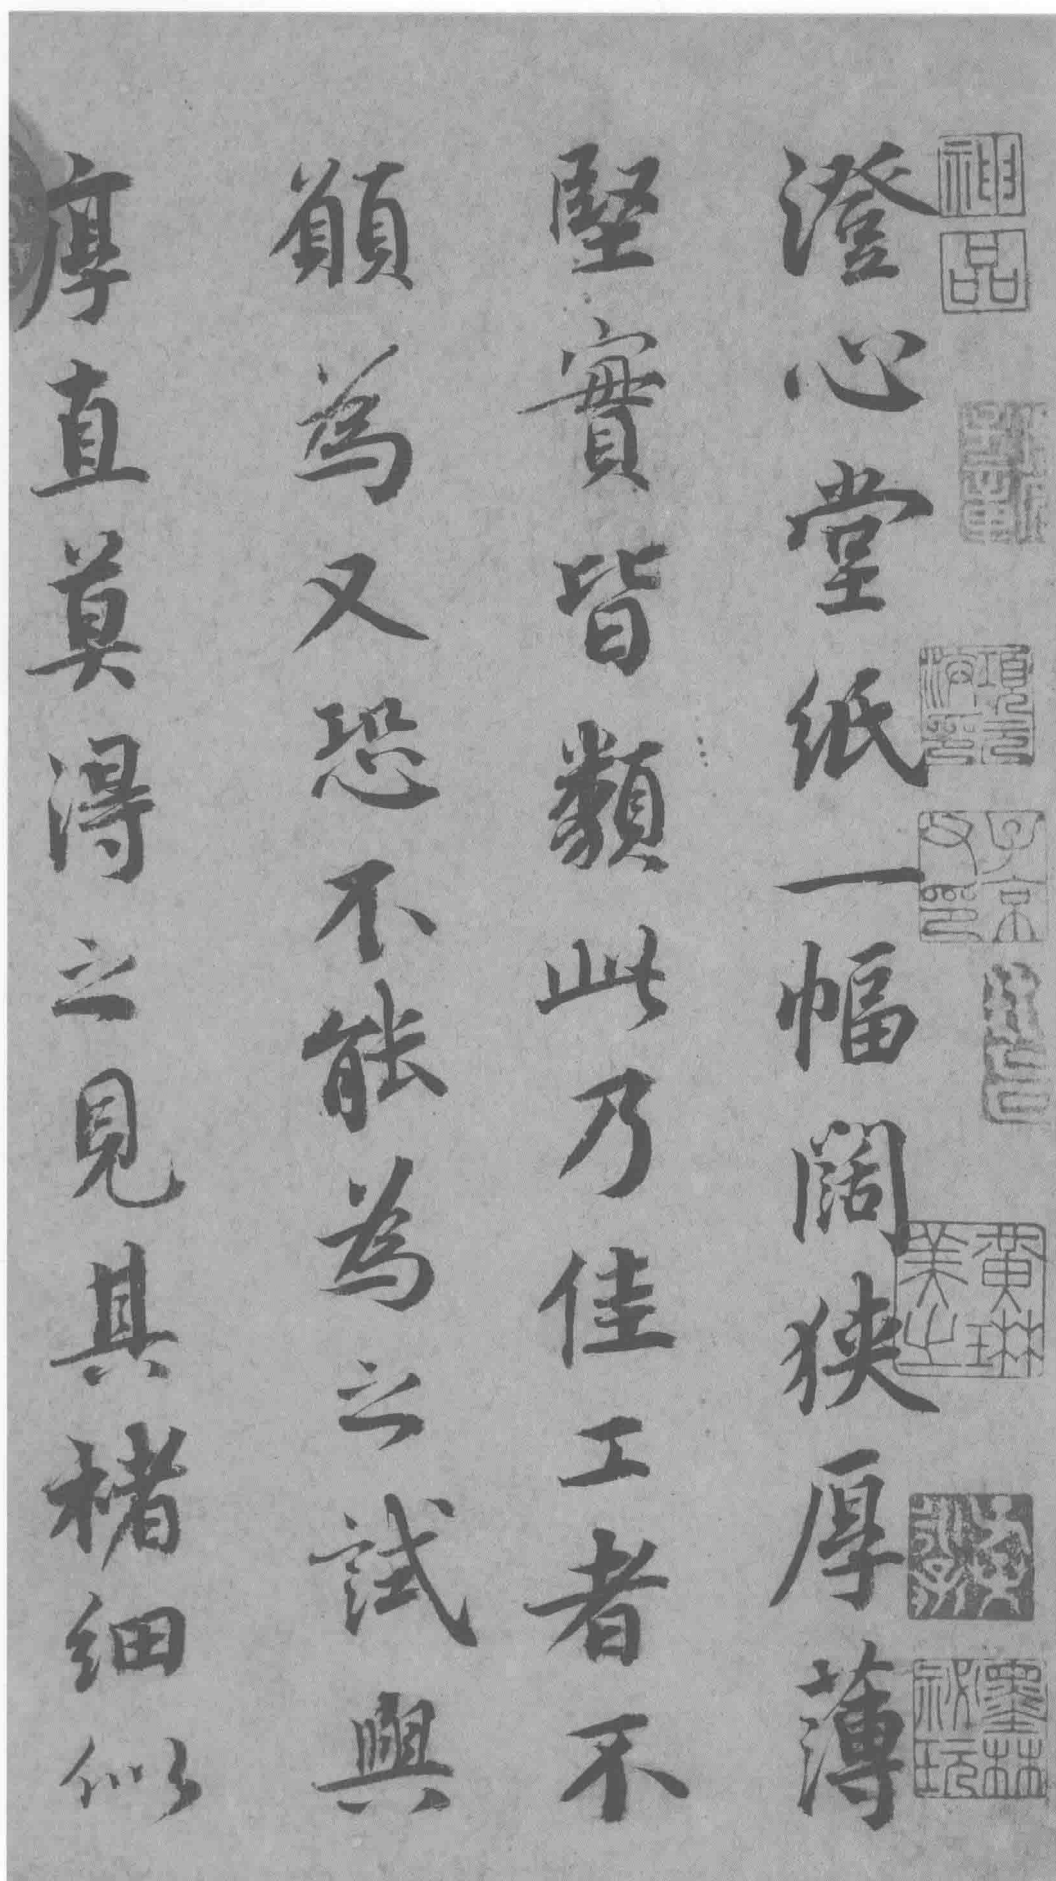 澄心堂紙一幅闊狹厚薄
堅實皆類此乃佳工者不
願為又恐不能為之試與
厚直莫得之見其楮細似
神品
項元汴印
子京父印
黃琳美之
墨林祕玩